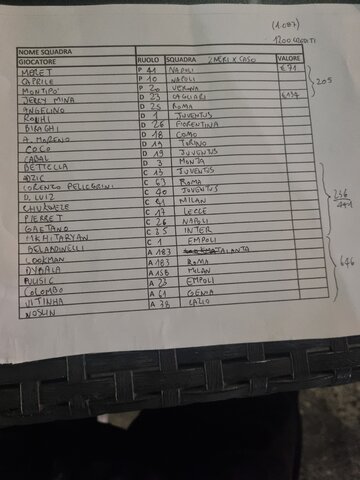 (1.087)
1200 CREDITI
NOME SQUADRA
GIOCATORE RUOLO SQUADRA X CASO VALORE
MERET P 41 NAPOLI €71
CAPRILE P 10 NAPOLI
MONTIPO' P 20 VERONA
205
JERRY MINA D 23 CAGLIARI €134
ANGELINO D 25 ROMA
D 1 JUVENTUS
BIRAGHI D 26 FIORENTINA
A. MORENO D 18 COMO
COCO D 19 TORINO
CABAL D 19 JUVENTUS
BETTELLA D 3 MONZA
ADZIC C 13 JUVENTUS
LORENZO PELLEGRINI C 63 ROMA
D. LUIZ C 40 JUVENTUS
236
CHUKWEZE C 41 MILAN
PIERRET C 17 LECCE
GAETANO C 26 NAPOLI
MKHITARYAN C 35 INTER
BELARDINELLI C 1 EMPOLI
LOOKMAN A 183 ATALANTA
DYBALA A 183 ROMA
646
PULISIC A 158 MILAN
COLOMBO A 23 EMPOLI
VITINHA A 61 GENOA
NOSLIN A 38 LAZIO